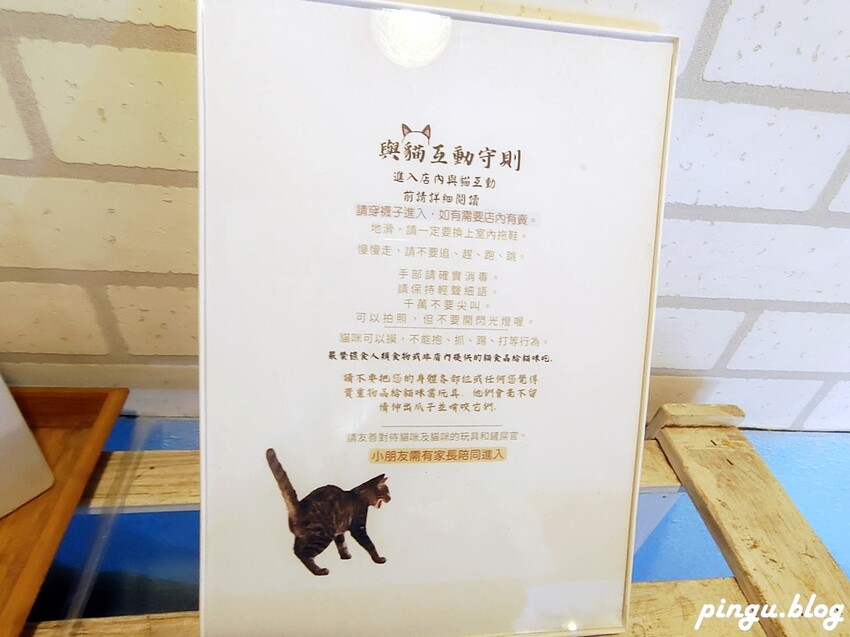 與貓互動守則
進入店內與貓互動
前請詳細閱讀
請穿襪子進入，如有需要店內有賣。
地滑，請一定要換上室內拖鞋。
慢慢走，請不要追、趕、跑、跳。
手部請確實消毒。
請保持輕聲細語。
千萬不要尖叫。
可以拍照，但不要開閃光燈喔。
貓咪可以摸，不能抱、抓、踢、打等行為。
嚴禁餵食人類食物或非店內提供的貓食品給貓咪吃.
請不要把您的身體各部位或任何您覺得
貴重物品給貓咪當玩具. 他們會毫不留
情伸出爪子並啃咬它們.
請友善對待貓咪及貓咪的玩具和鏟屎官。
小朋友需有家長陪同進入
pingu.blog